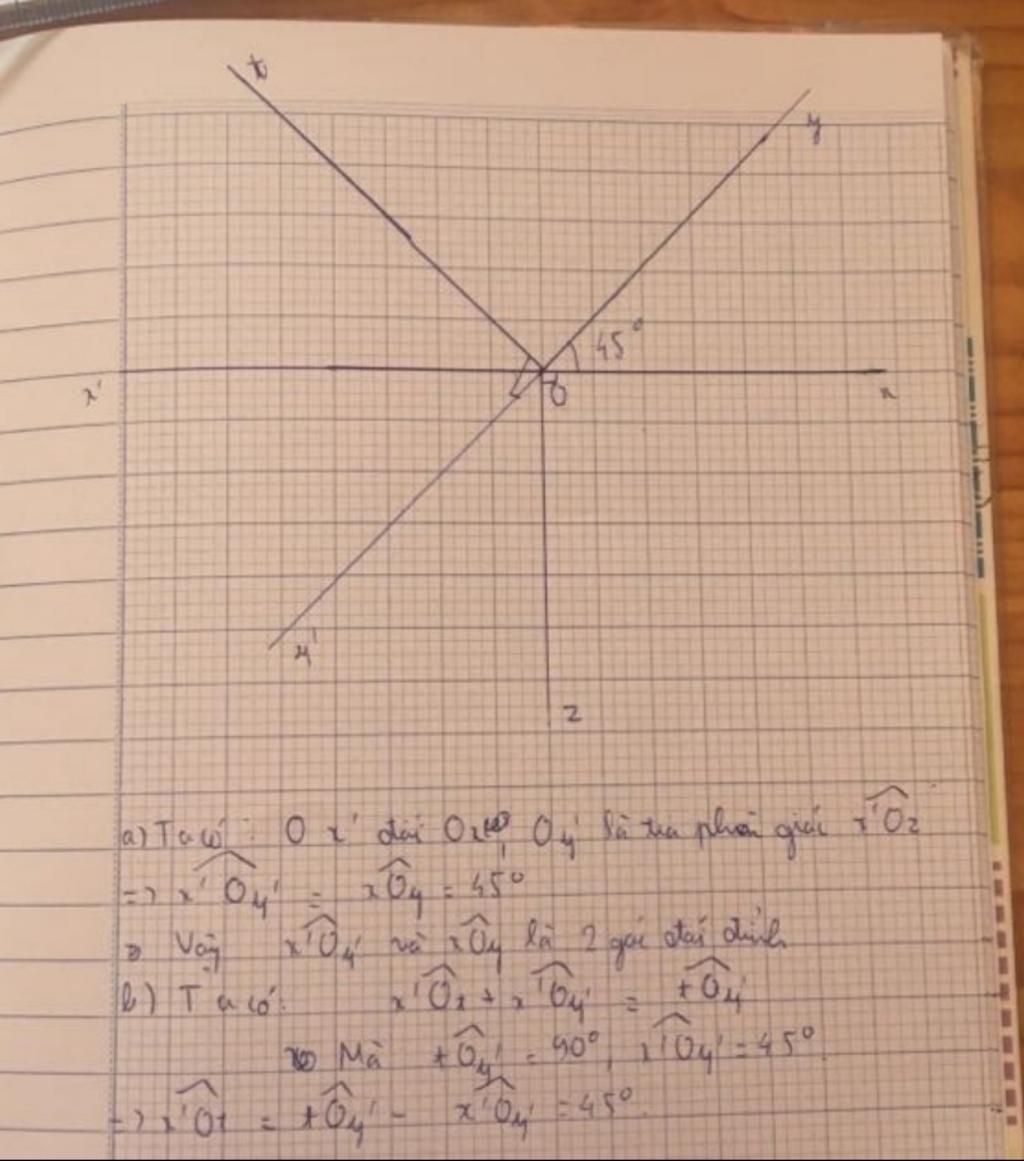 t
y
45°
x'
O
x
y'
z
a) Ta có: O x' đối Ox, Oy' là tia phân giác x'Oz
=> x'Oy' = xOy = 45°
Vậy x'Oy' và xOy là 2 góc đối đỉnh
b) Ta có: x'Ot + x'Oy' = tOy'
Mà tOy' = 90°, x'Oy' = 45°
=> x'Ot = tOy' - x'Oy' = 45°